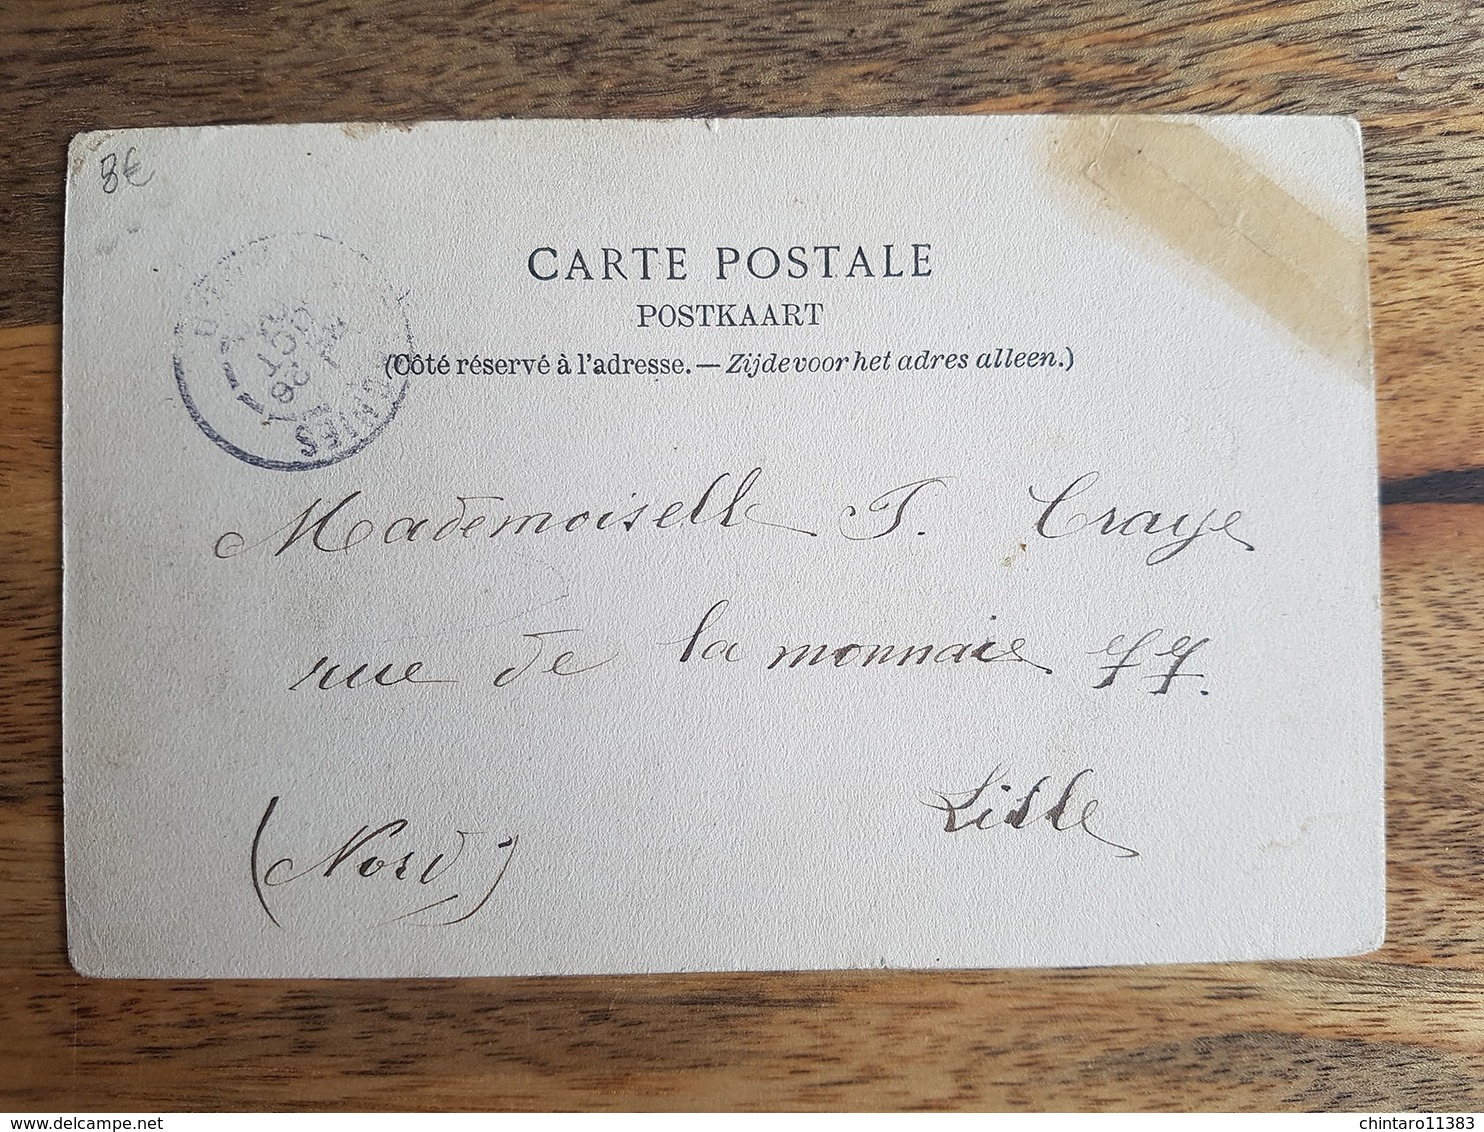 8€
CARTE POSTALE
POSTKAART
(Côté réservé à l'adresse. — Zijde voor het adres alleen.)
Mademoiselle J. Craye
rue de la monnaie 77.
Lille
(Nord)
delcampe.net
chintaro11383